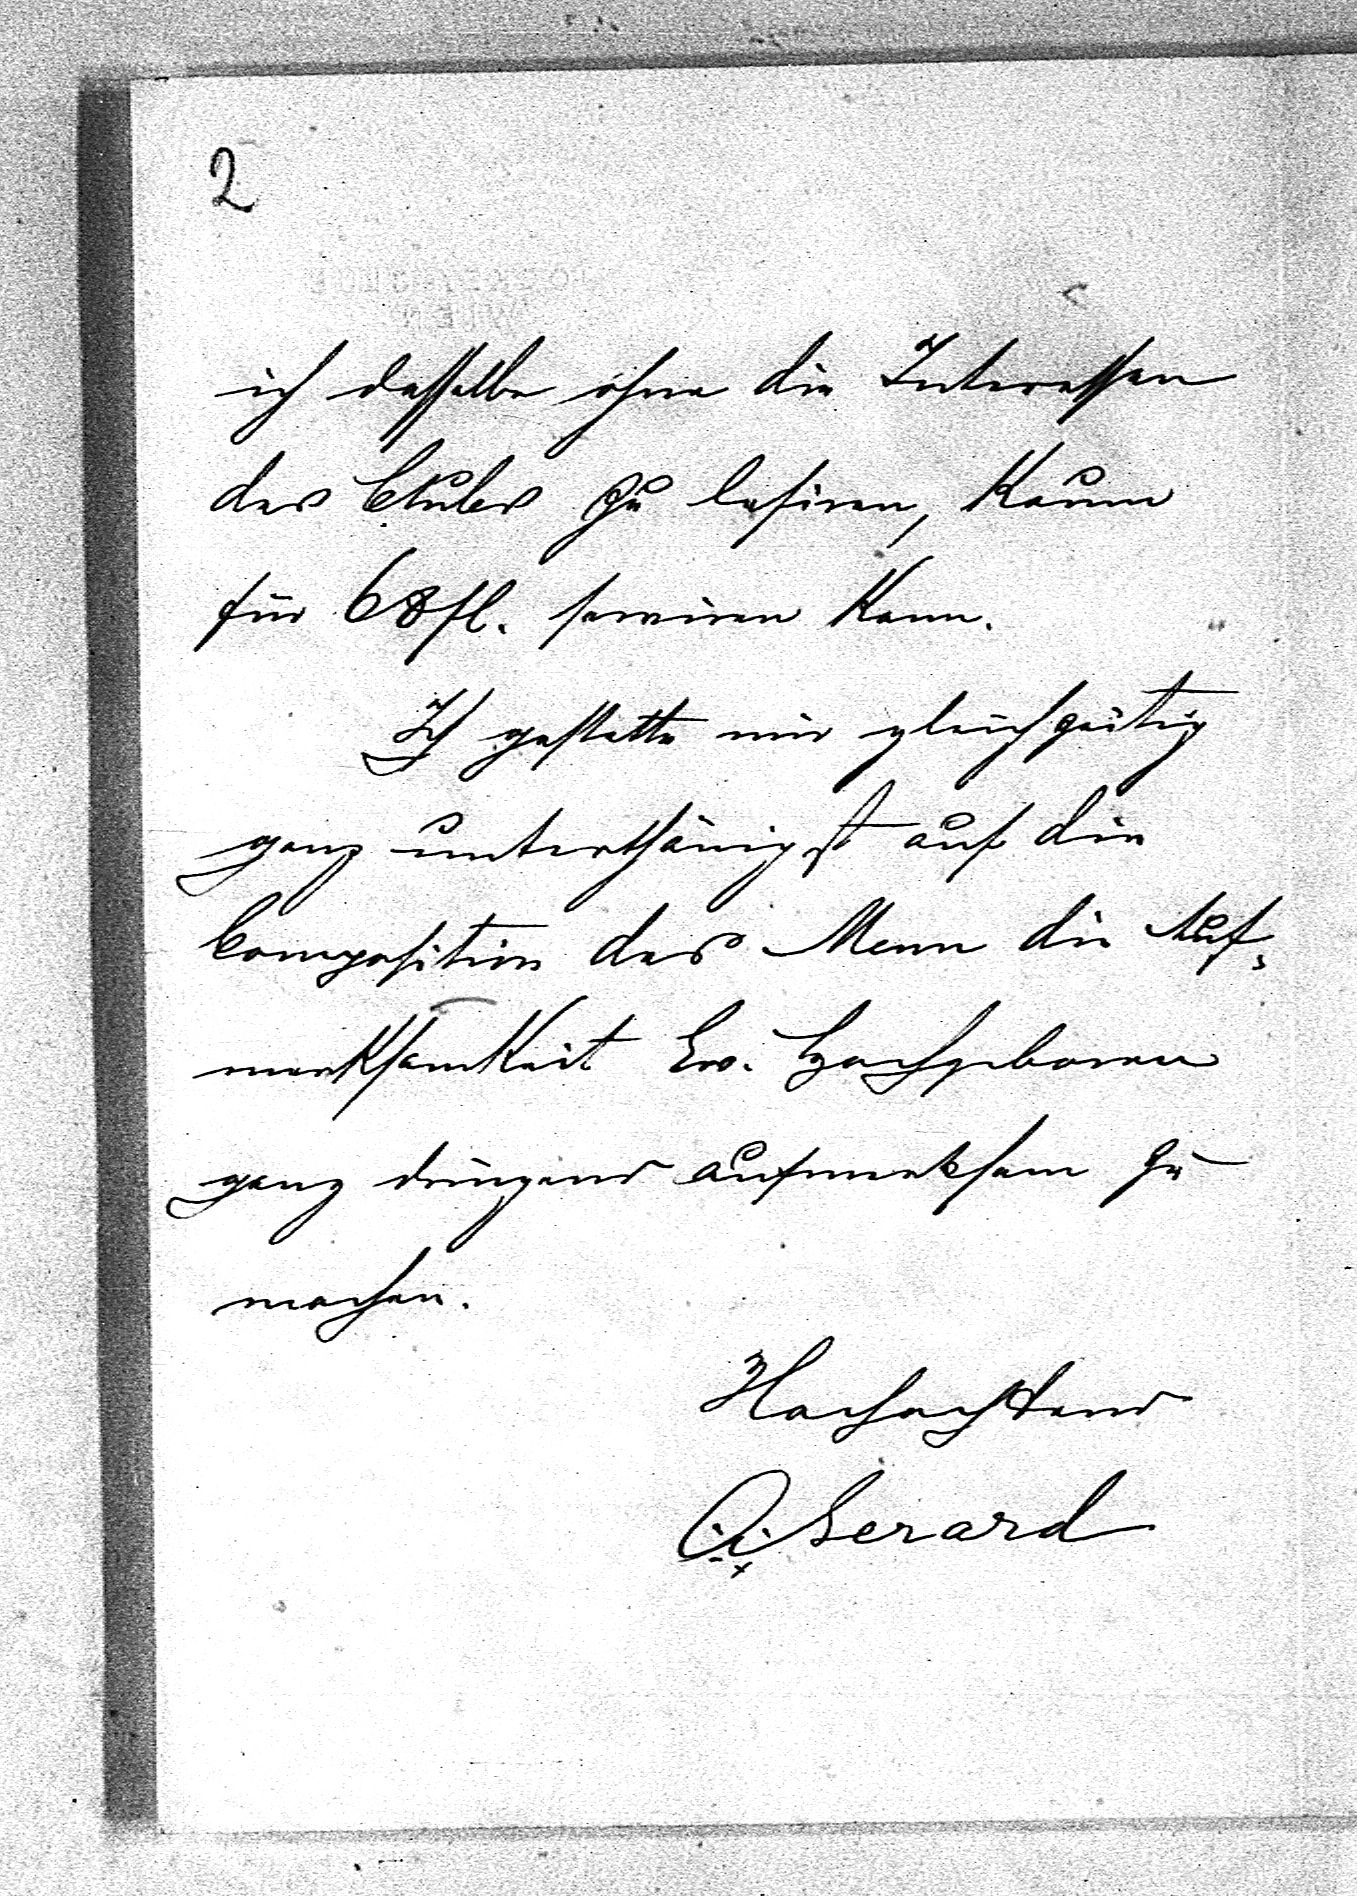 2
JOCKEY CLUB
WIEN
ich dasselbe ohne die Interessen
des Clubs zu lesiren, kaum
für 68 fl. serviren kann.
Ich gestatte mir gleichzeitig
ganz unterthänigst auf die
Composition des Menu die Auf-
merksamkeit Ew. Hochgeboren
ganz dringend aufmerksam zu
machen.
Hochachtend
Gerard